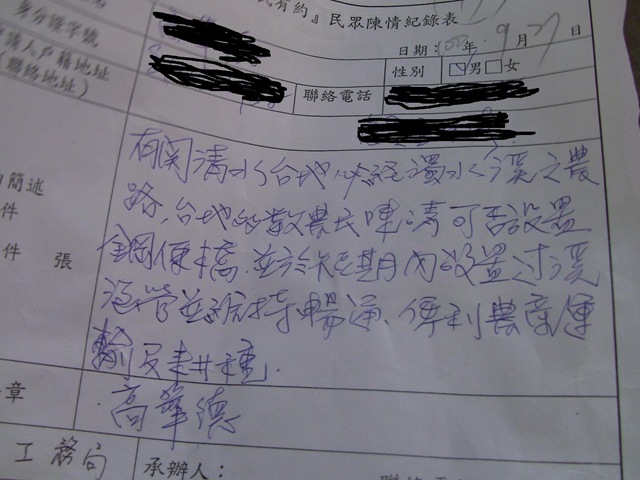 民有約』民眾陳情紀錄表
身分證字號
日期:100年9月27日
請人戶籍地址
(聯絡地址)
聯絡電話
性別 男 女
由簡述
件
件 張
有関清水台地必経濁水溪之農
路,台地的數農民陳請可否設置
鋼便橋,並於短期內設置过溪
涵管並維持暢通,便利農產運
輸及耕種.
章
高華德
工務局
承辦人: